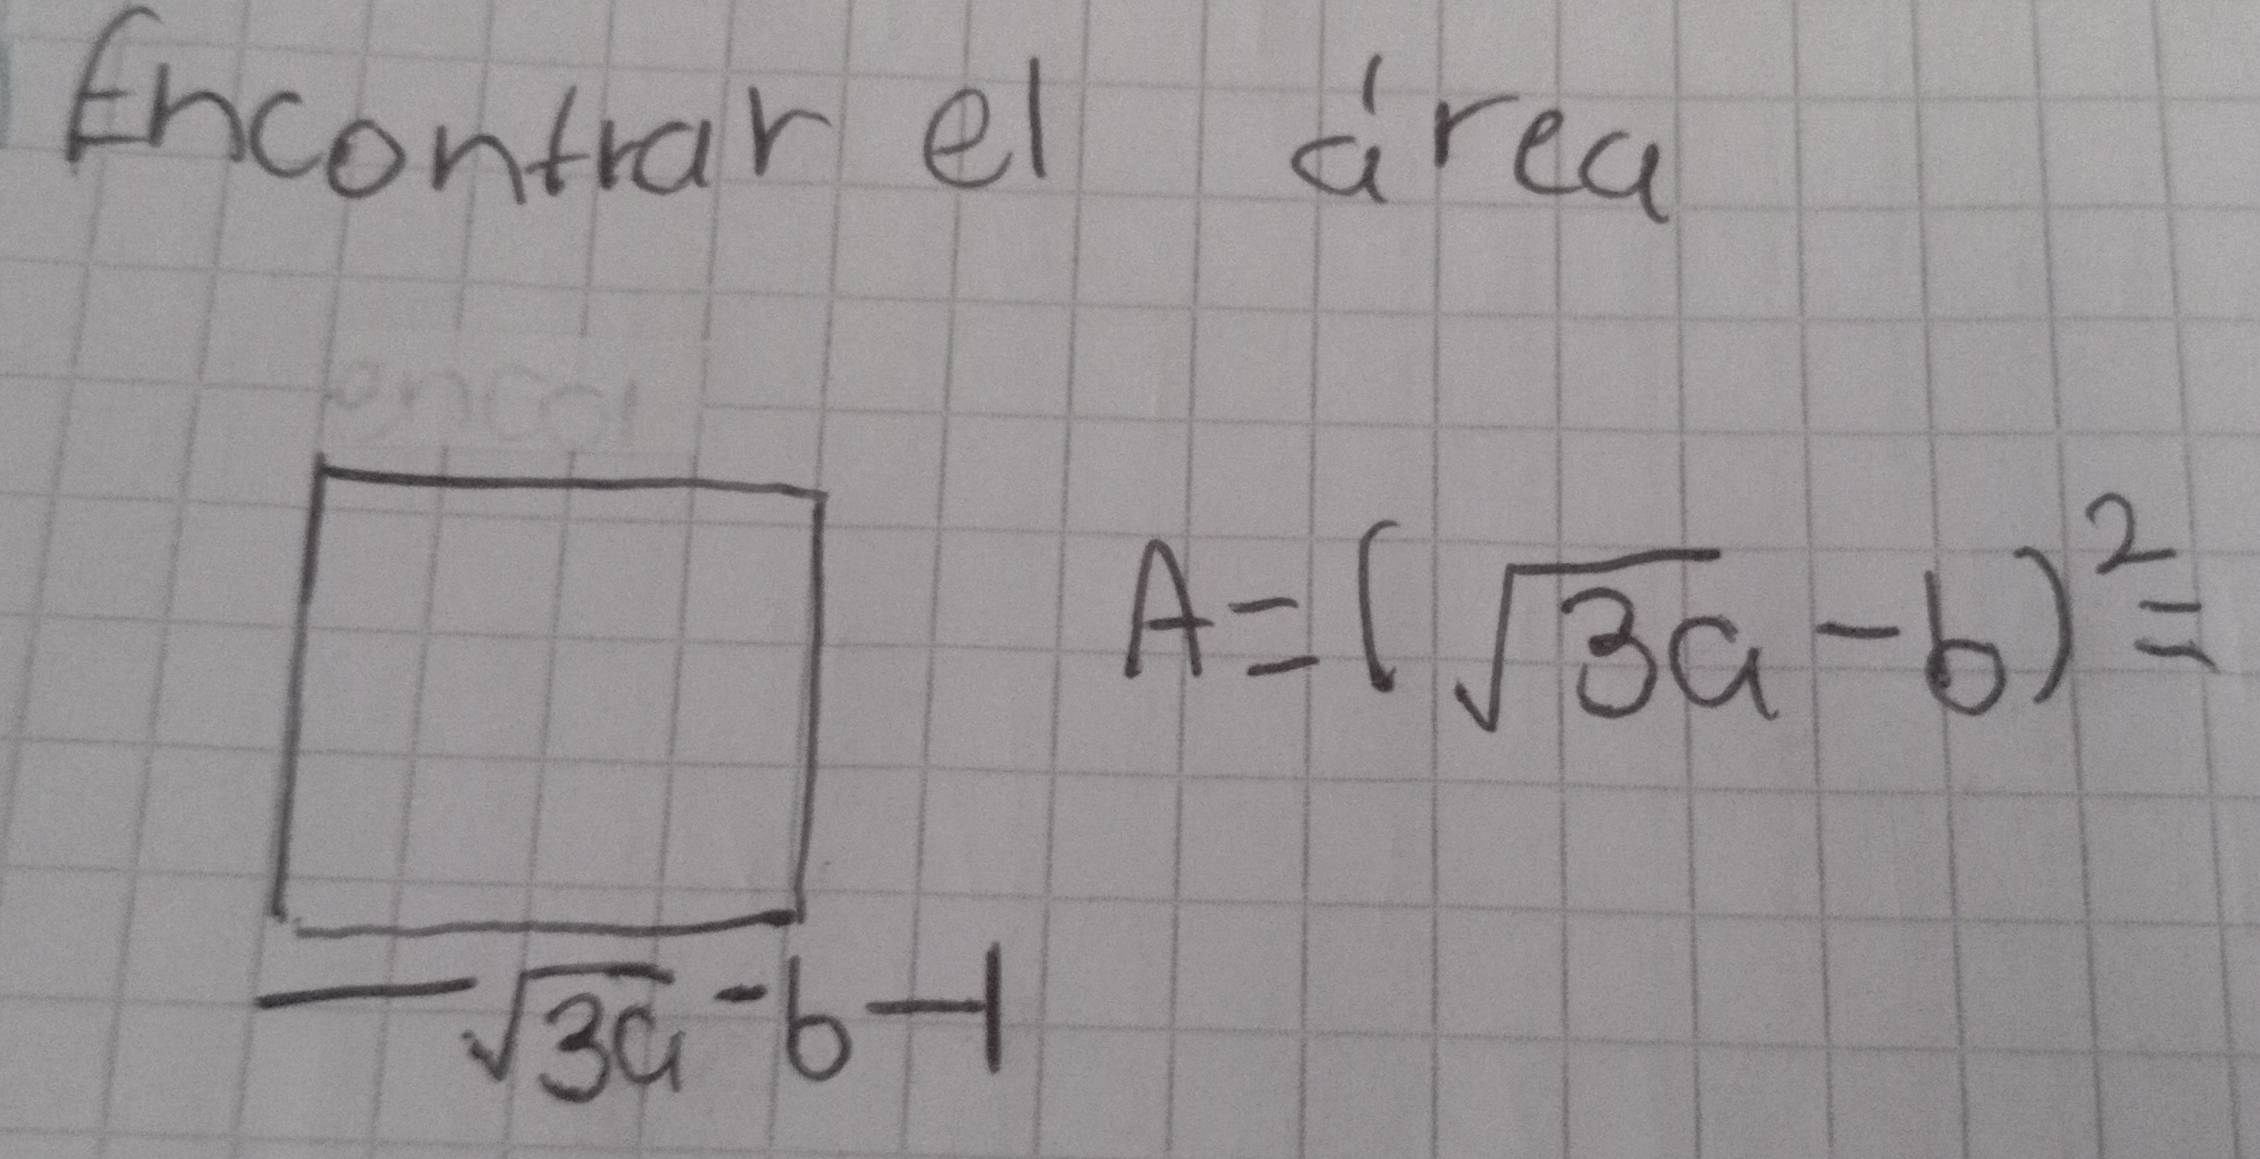 Encontrar el área
A = (√3a - b)² =
√3a - b